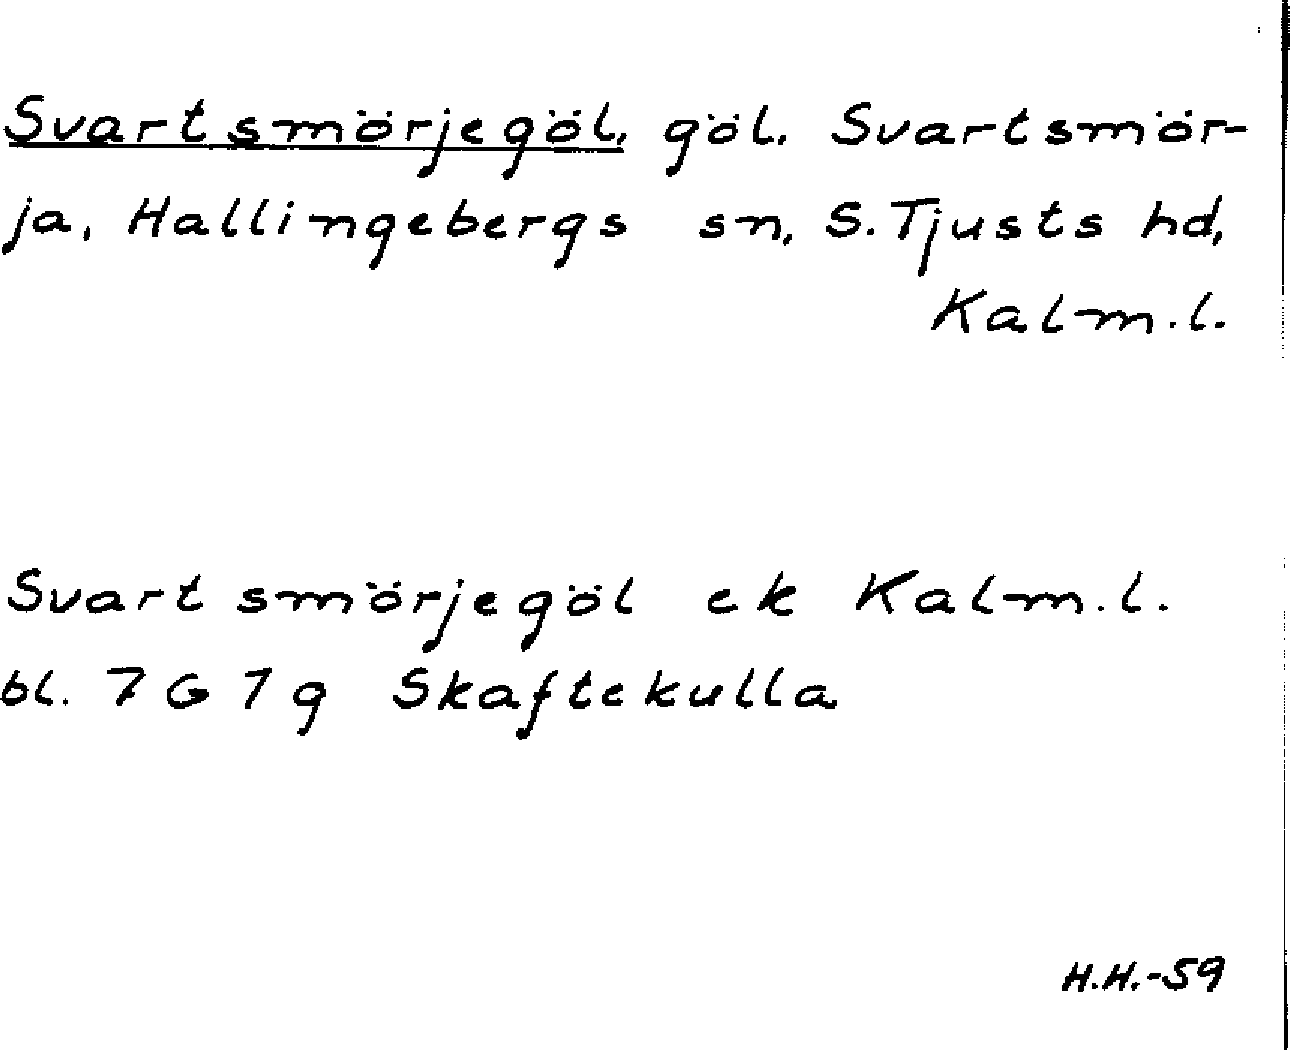 Svartsmörjegöl, göl. Svartsmör-
ja, Hallingebergs sn, S. Tjusts hd,
Kalm. l.
Svartsmörjegöl ek Kalm. l.
bl. 7 G 7 g Skaftekulla
H.H.-59